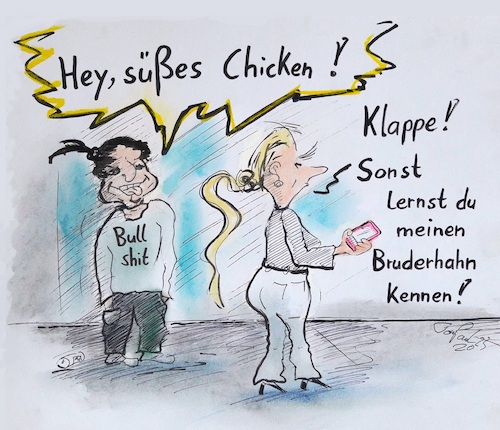 Hey, süßes Chicken !
Klappe!
Sonst
Lernst du
meinen
Bruderhahn
Kennen!
Bull
shit